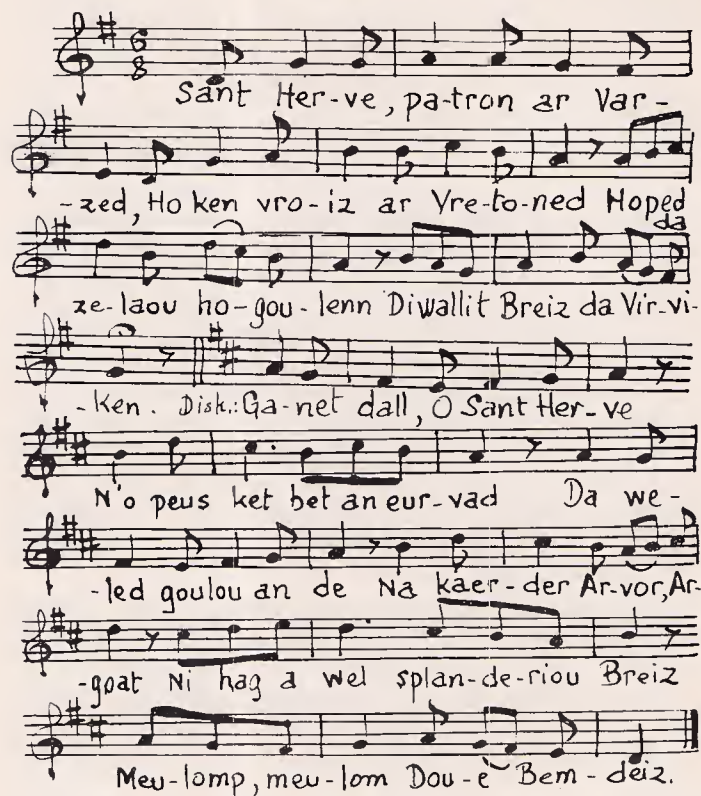 6
8
Sant Her-ve, pa-tron ar Var-
-zed, Ho ken vro-iz ar Vre-to-ned Hoped
da
ze-laou ho-gou-lenn Diwallit Breiz da Vir-vi-
-ken. Disk.: Ga-net dall, O Sant Her-ve
N'o peus ket bet an eur-vad Da we-
-led goulou an de Na kaer-der Ar-vor, Ar-
-goat Ni hag a wel splan-de-riou Breiz
Meu-lomp, meu-lom Dou-e Bem-deiz.